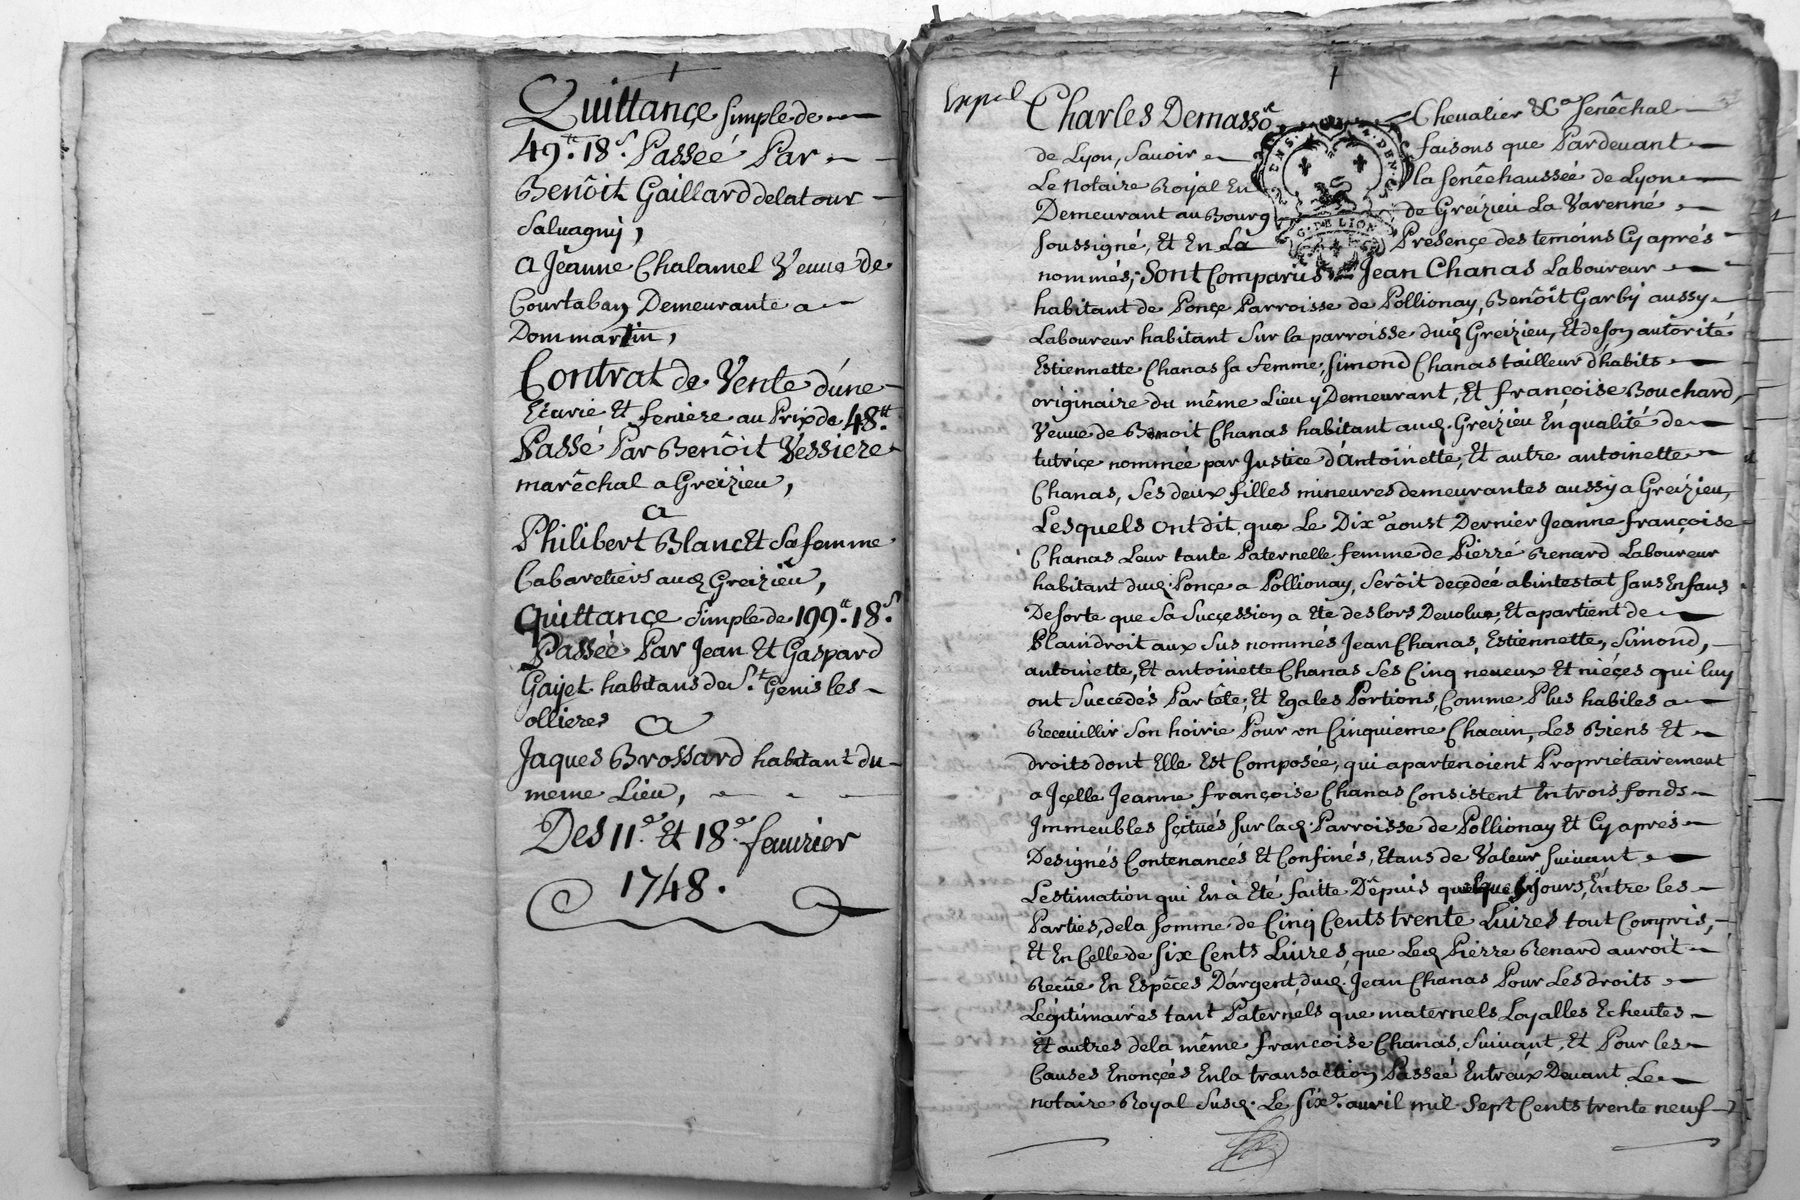 Quittançe simple de
49.tt 18.s Passeé Par
Benôit Gaillard delatour
Saluagny,
a Jeanne Chalamel Veuue de
Courtaban Demeurante a
Dommartin,
Contrat de Vente d'úne
Ecurie Et feniere au Prix de 48.tt
Passé Par Benôit Vessiere
marêchal a Greizieu,
a
Philibert Blanc Et Sa femme
Cabaretiers aud. Greizieu,
Quittançe simple de 199.tt 18.s
Passéé Par Jean Et Gaspard
Gayet habitans de S.t Genis les
ollieres a
Jaques Brossard habitant du
meme Lieu,
Des 11.e Et 18.e feurier
1748.
Charles Demasso Chevalier &c.a Senêchal
de Lyon, Sauoir faisons que Pardeuant
Le Notaire Royal En la Senêchaussée de Lyon
Demeurant au Bourg de Greizieu La Varenne
soussigné, Et En La Presençe des temoins Cy aprés
G. DE LION
nommés, Sont Comparus Jean Chanas Laboureur
habitant de Ponçe Parroisse de Pollionay, Benôit Garby aussy
Laboureur habitant Sur la parroisse dud. Greizieu, Et de son autôrité
Estiennette Chanas sa femme, Simond Chanas tailleur d'habits
originaire du même Lieu y Demeurant, Et françoise Bouchard,
Veuue de Benoit Chanas habitant aud. Greizieu En qualité de
tutriçe nommée par Justice d'Antoinette, Et autre antoinette
Chanas, Ses deux filles mineures demeurantes aussy a Greizieu,
Lesquels ont dit que Le Dix.e aoust Dernier Jeanne françoise
Chanas Leur tante Paternelle femme de Pierré Renard Laboureur
habitant dud. Ponçe a Pollionay, Serôit deçedeé abintestat sans Enfans
De sorte que Sa Suççession a Eté des lors Devolue, Et apartient de
Plain droit aux Sus nommés Jean Chanas, Estiennette, Simond,
antoinette, Et antoinette Chanas Ses Cinq neueux Et niéçes qui luy
ont Succedés Par tête, Et Egales Portions, Comme Plus habiles a
Receuillir Son hoirie Pour un Cinquieme Chacun, Les Biens Et
droits dont Elle Est Composée, qui apartenoient Propriétairement
a Içelle Jeanne françoise Chanas Consistent En trois fonds
Immeubles sçitués sur lad. Parroisse de Pollionay Et Cy aprés
Designés Contenancés Et Confinés, Etans de Valeur suiuant
Lestimation qui En à Eté faitte Depuis quelques jours, Entre les
Parties, de la somme de Cinq Cents trente Liures tout Compris,
Et En Celle de six Cents Liures, que Led. Pierre Renard auroit
Reçûe En Espêces D'argent, dud. Jean Chanas Pour Les droits
Légitimaires tant Paternels que maternels Loyalles Echeutes
Et autres dela même françoise Chanas, Suiuant, Et Pour les
Causes Enonçées En la transaction Passeé Entréux Deuant Le
notaire Royal Susd. Le six.e auril mil Sept Cents trente neuf